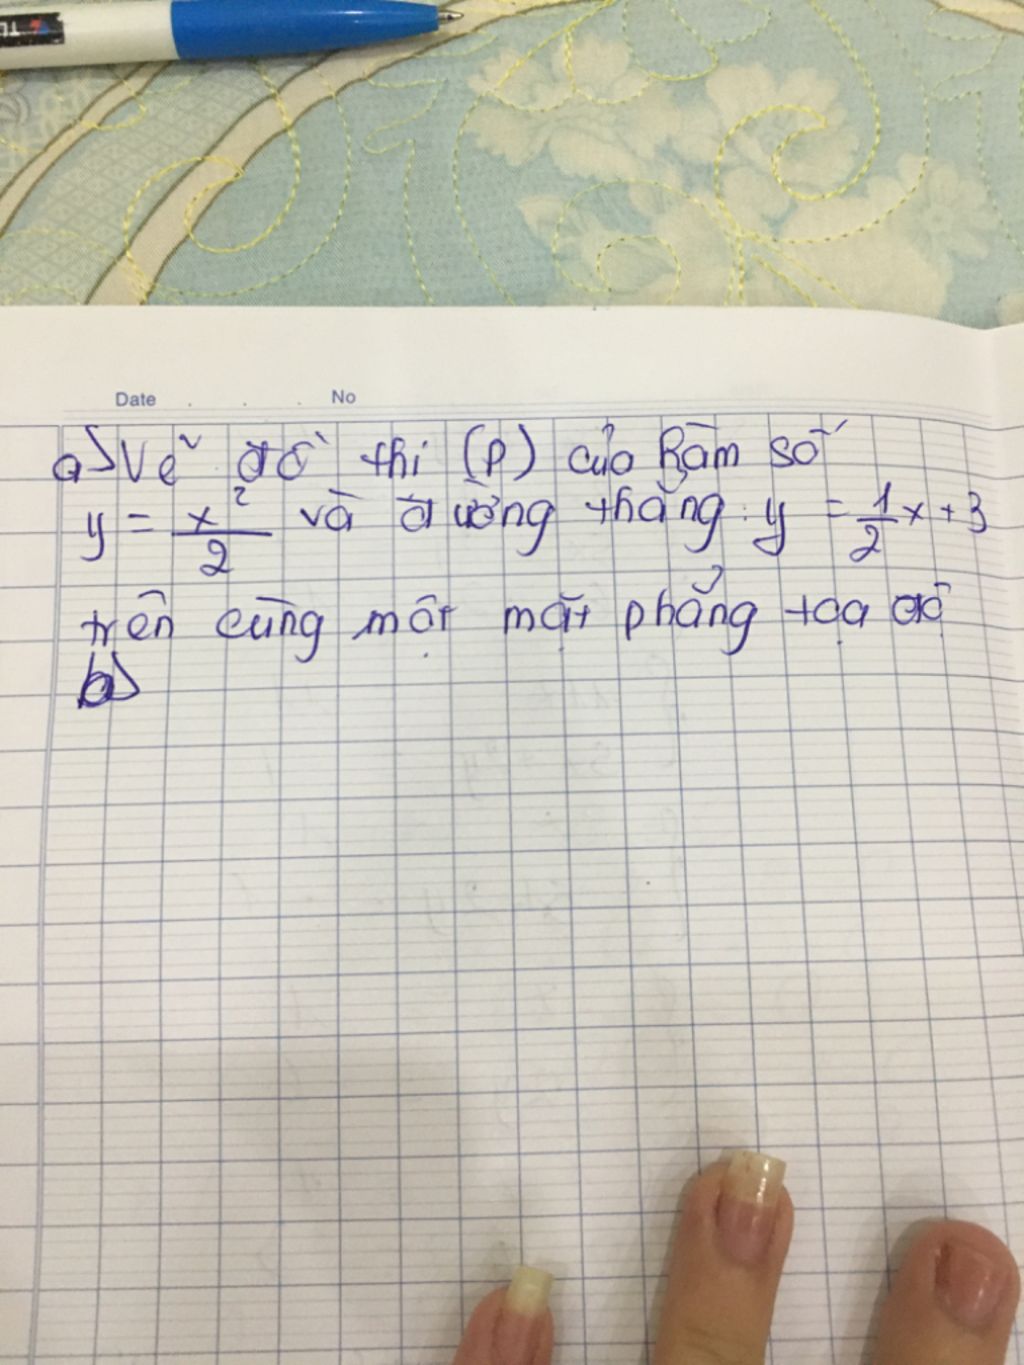 Date . . . No
a> Vẽ đồ thị (P) của hàm số
y = x²/2 và đường thẳng: y = 1/2 x + 3
trên cùng một mặt phẳng tọa độ
b>